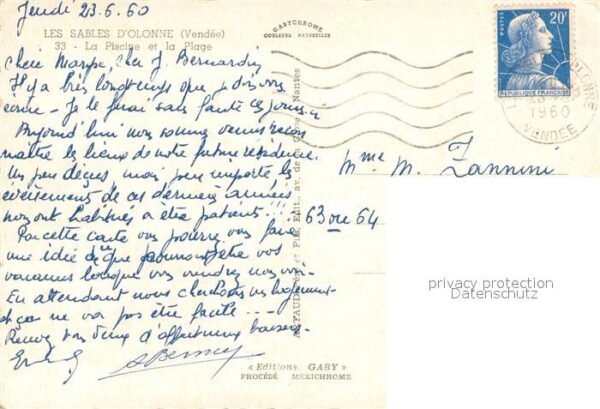 Jeudi 23.6.60
LES SABLES D'OLONNE (Vendée)
33 - La Piscine et la Plage
GABYCHROME
COULEURS NATURELLES
Bernardin
Il y a très longtemps que je dois vous
écrire - Je le ferai sans faute ces jours-ci
Aujourd'hui nous sommes venus recon
naître les lieux de notre future résidence.
Un peu déçus mais peu importe les
évènements de ces dernières années
nous ont habitués à être patients !!!
Par cette carte vous pourrez vous faire
une idée de ce que pourront être vos
vacances lorsque vous viendrez nous voir.
En attendant nous cherchons un logement
et ça ne va pas être facile ---
Recevez tous deux d'affectueux baisers.
Mme M. Zannini
63 ou 64
POSTES
20F
REPUBLIQUE FRANÇAISE
1960
VENDEE
av. de la Gare, Nantes
privacy protection
Datenschutz
« Editions GABY »
PROCÉDÉ MEXICHROME